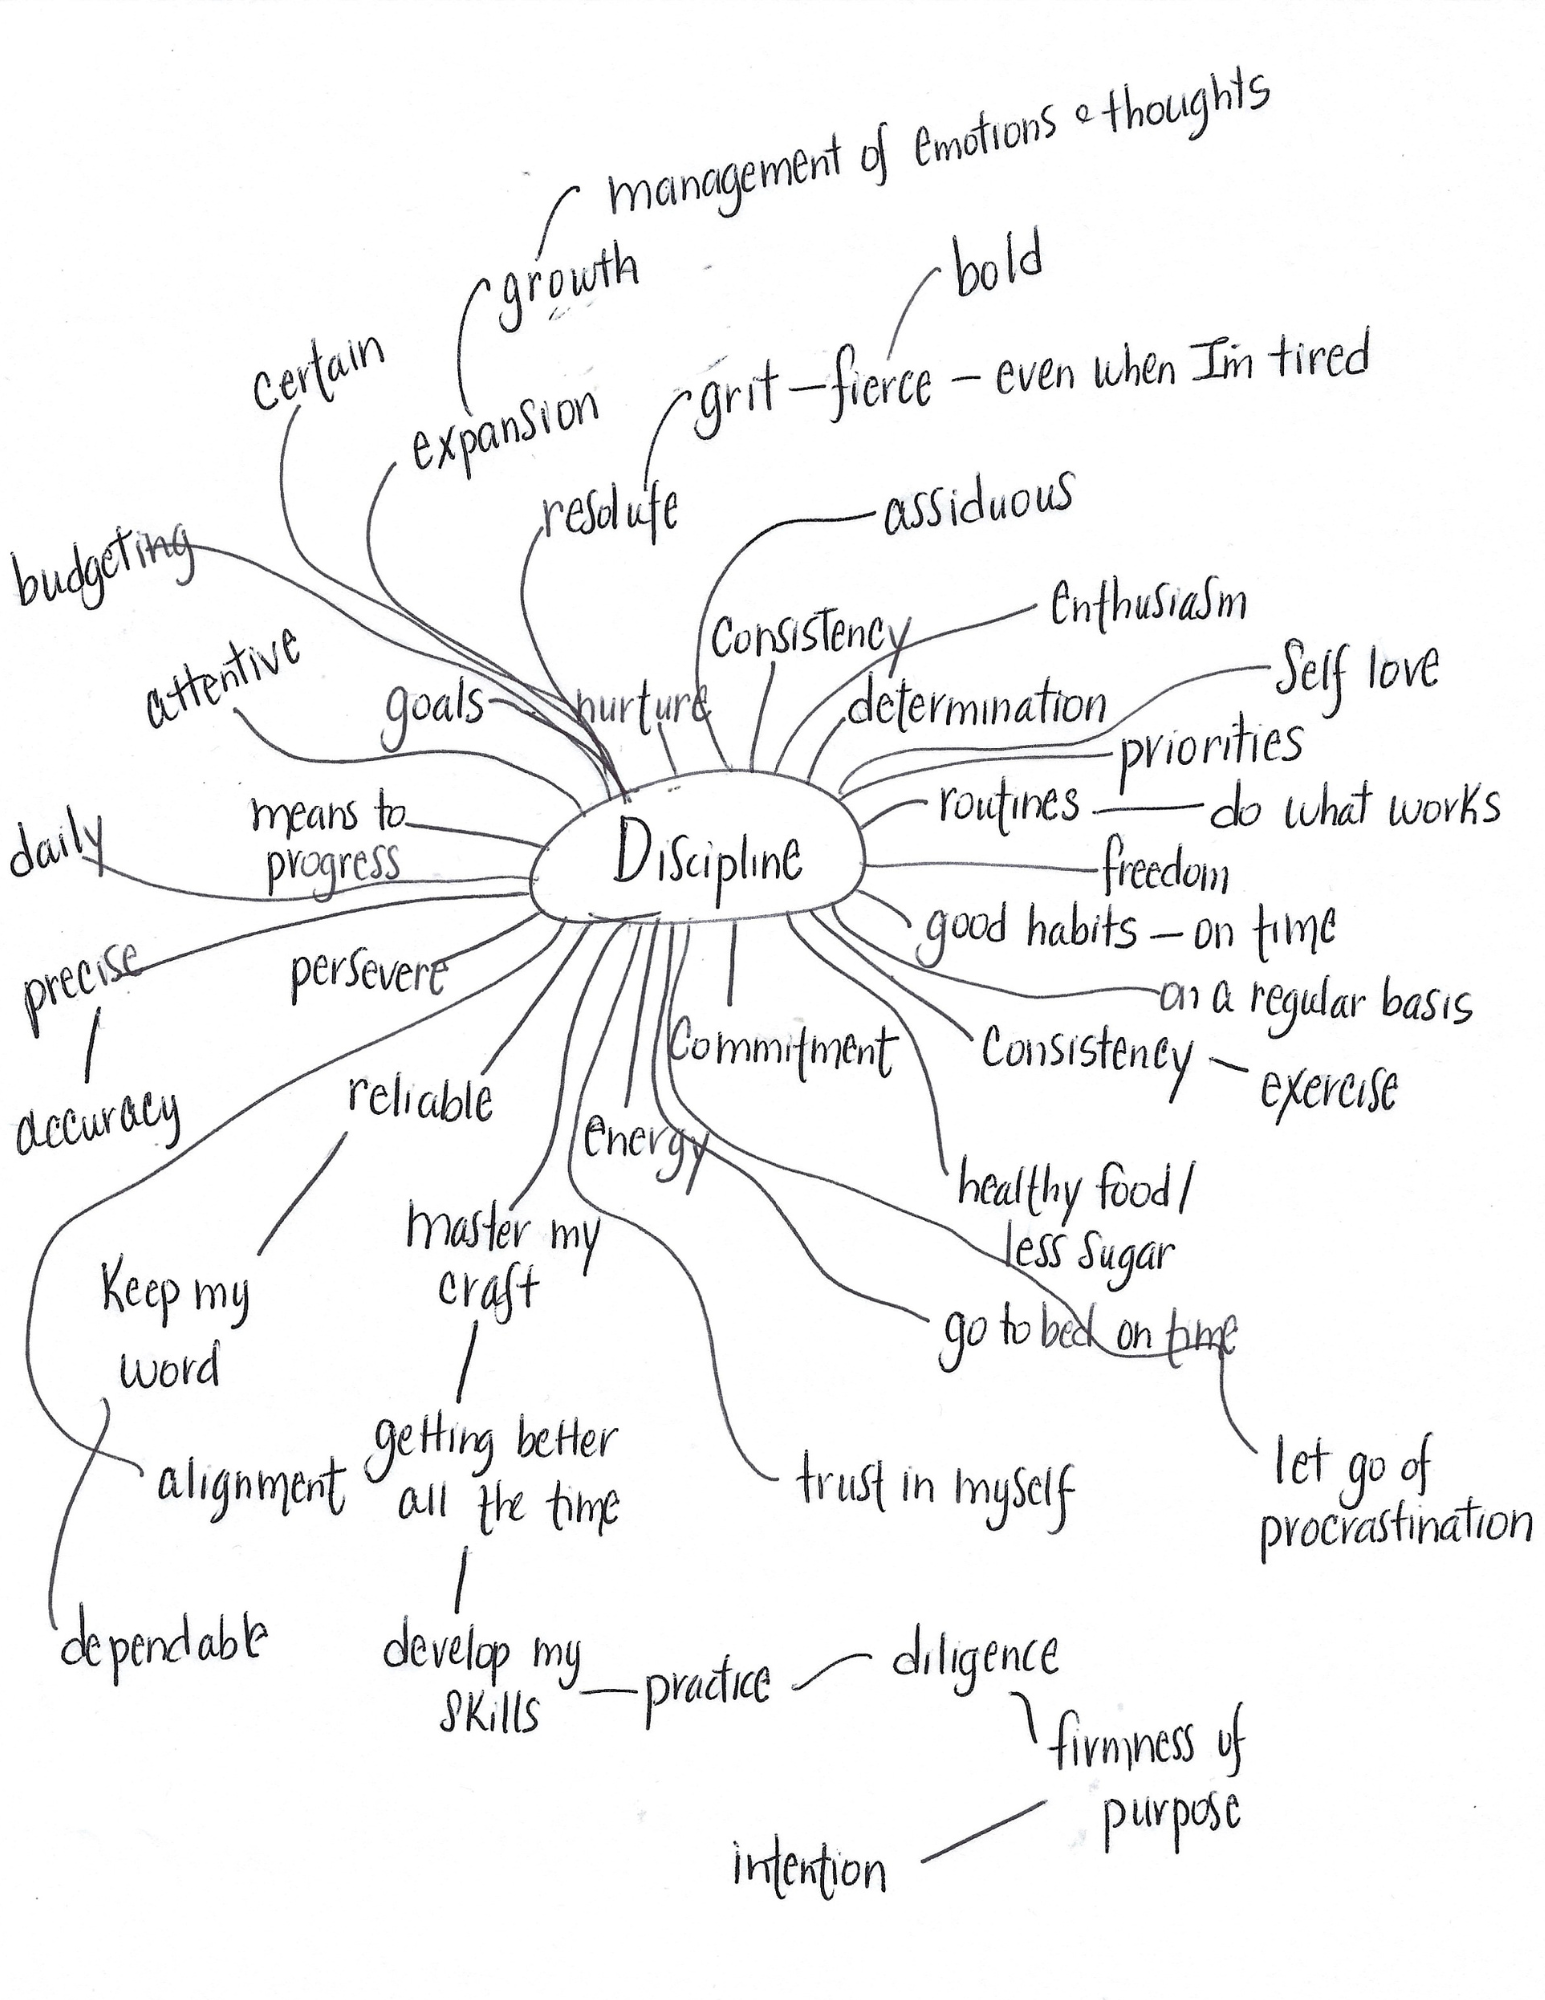 management of emotions & thoughts
growth
bold
certain
expansion
grit – fierce – even when I'm tired
resolute
assiduous
budgeting
Consistency
enthusiasm
attentive
goals
nurture
determination
Self love
priorities
means to
progress
routines — do what works
daily
Discipline
freedom
good habits – on time
precise
persevere
on a regular basis
accuracy
reliable
Commitment
Consistency – exercise
energy
healthy food /
less sugar
master my
craft
Keep my
word
go to bed on time
getting better
all the time
alignment
trust in myself
let go of
procrastination
dependable
develop my
skills
practice
diligence
firmness of
purpose
intention